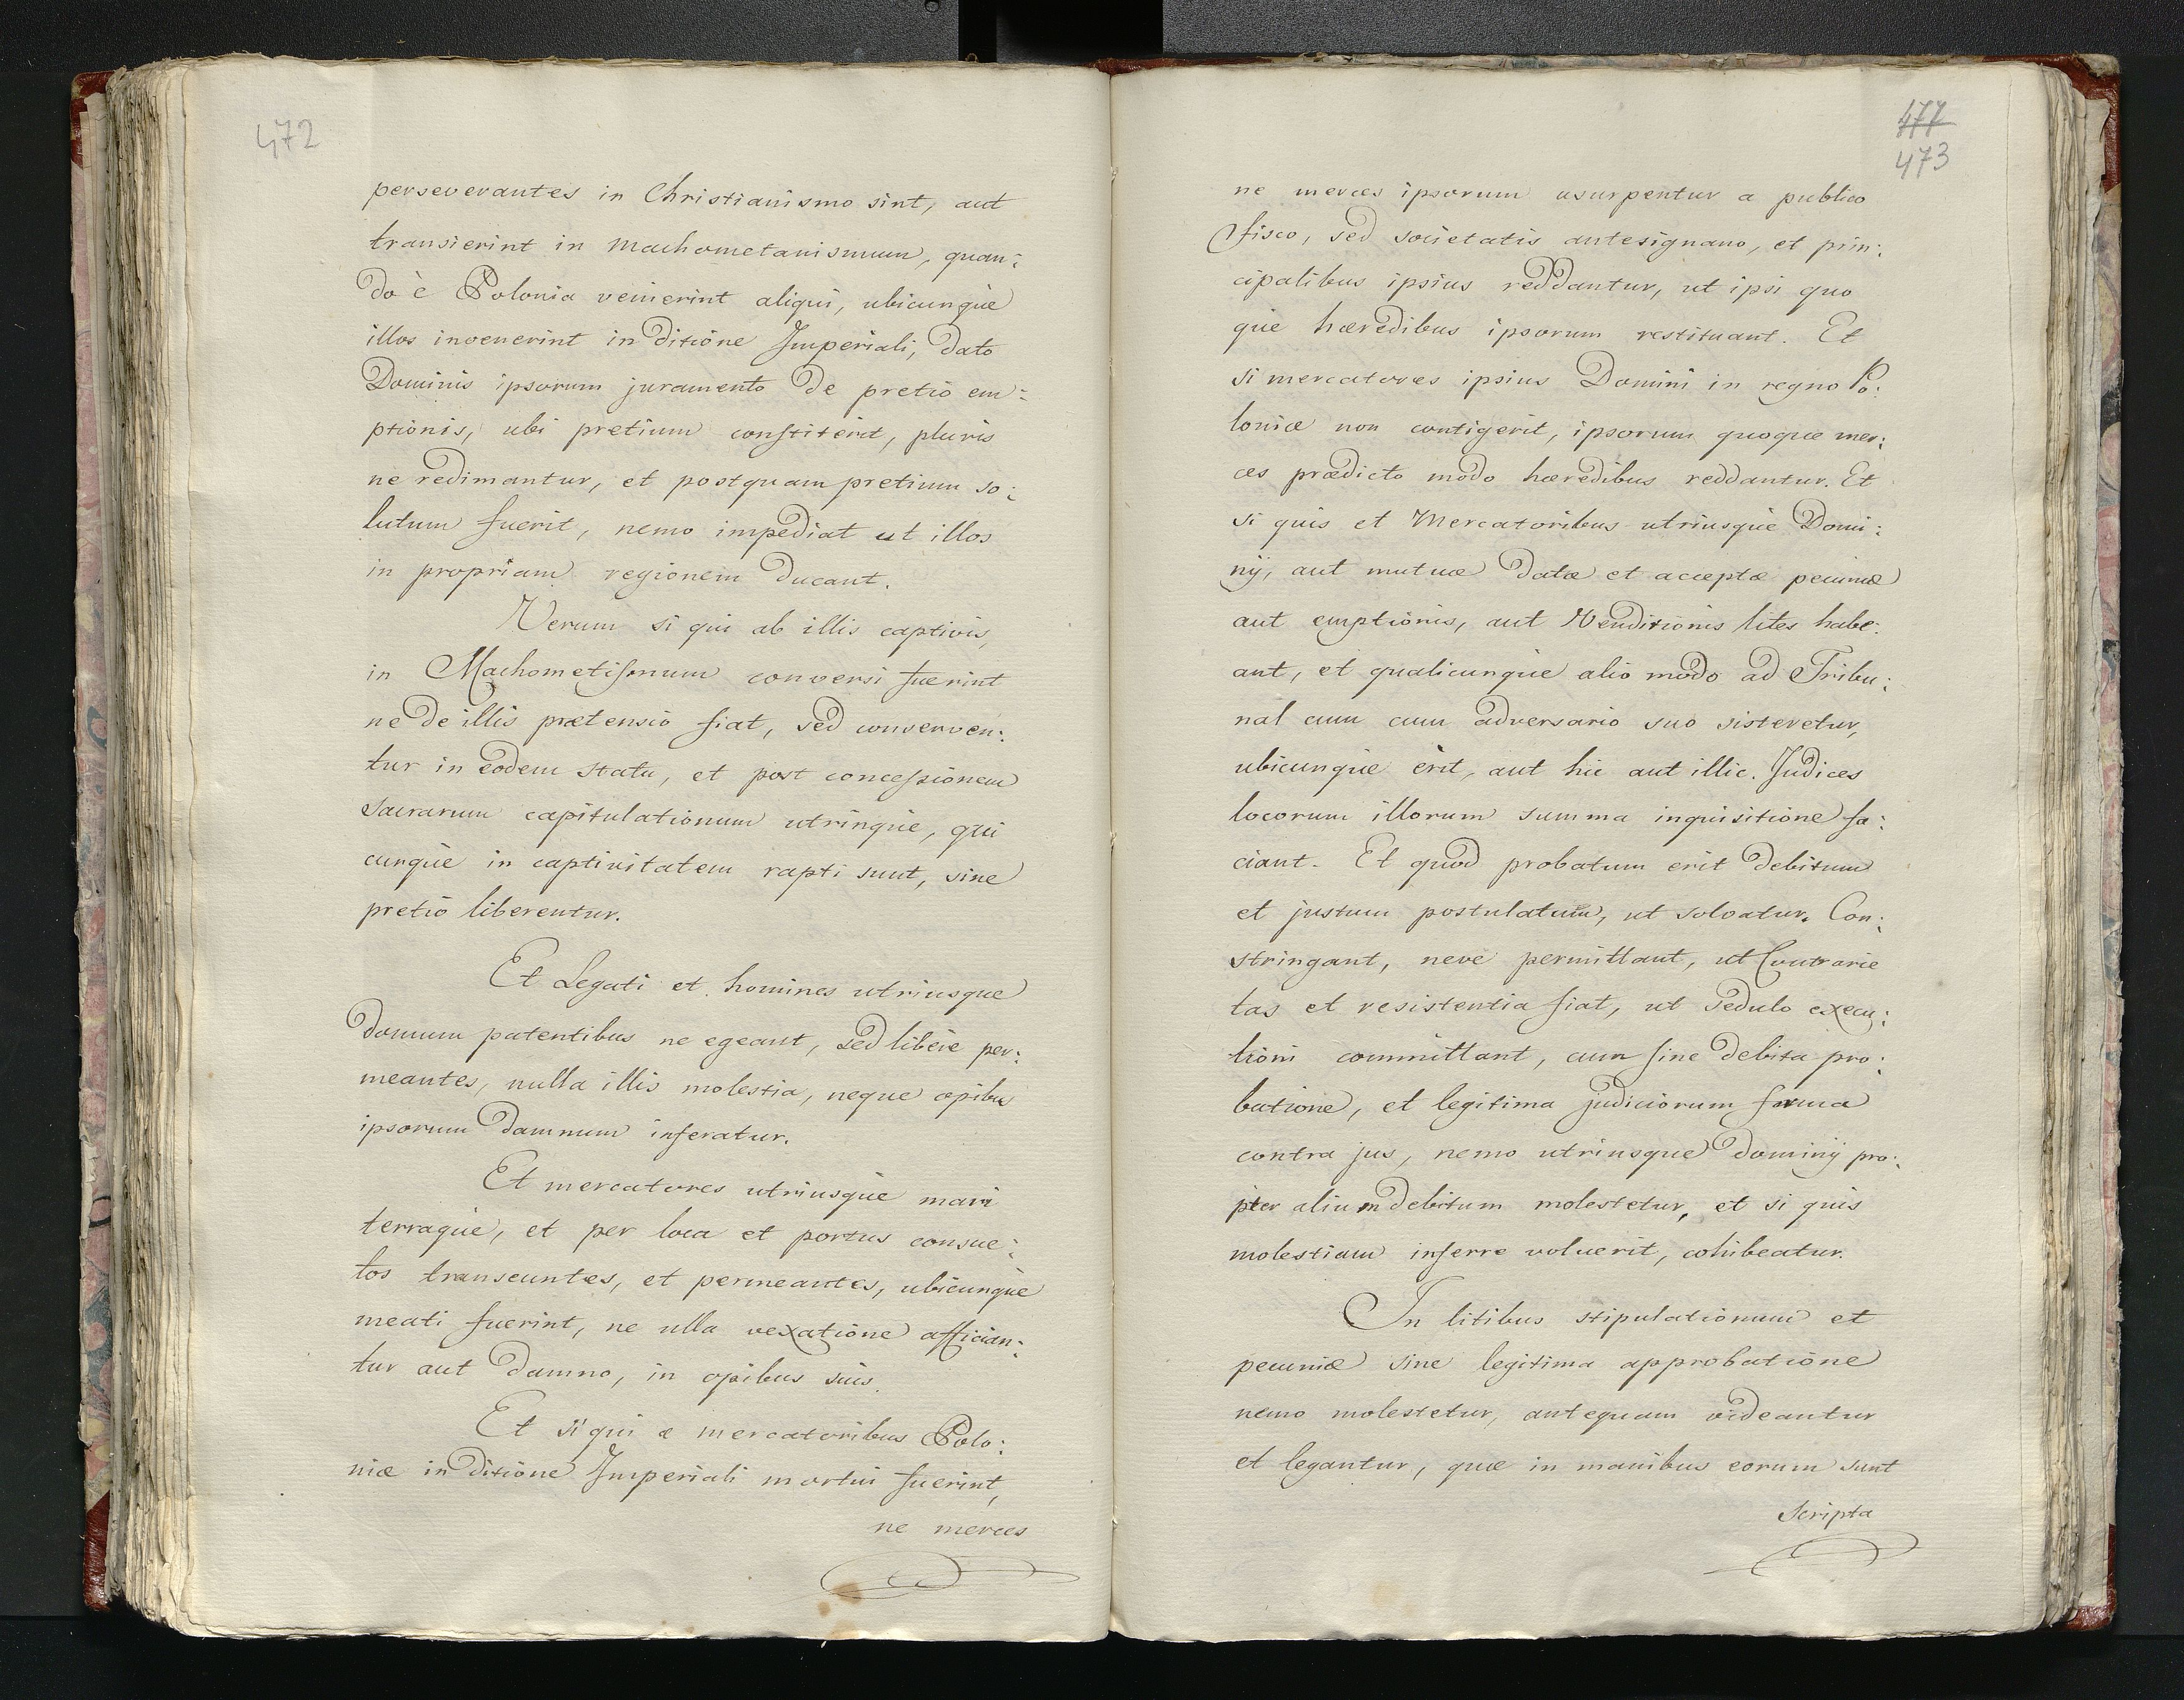 472
perseverantes in Christianismo sint, aut
transierint in Machometanismum, quan:
do è Polonia venierint aliqui, ubicunque
illos invenerint in ditione Imperiali, dato
Dominis ipsorum juramento de pretio em:
ptionis, ubi pretium constiterit, pluris
ne redimantur, et postquam pretium so:
lutum fuerit, nemo impediat ut illos
in propriam regionem ducant.
Verum si qui ab illis captivis,
in Machometismum conversi fuerint
ne de illis prætensio fiat, sed conserven:
tur in eodem statu, et post concessionem
sacrarum capitulationum utrinque, qui
cunque in captivitatem rapti sunt, sine
pretio liberentur.
Et Legati et homines utriusque
domum patentibus ne egeant, sed libere per:
meantes, nulla illis molestia, neque opibus
ipsorum damnum inferatur.
Et mercatores utriusque mari
terraque, et per loca et portus consue:
tos transeuntes, et permeantes, ubicunque
meati fuerint, ne ulla vexatione affician:
tur aut damno, in opibus suis.
Et si qui e mercatoribus Polo:
niæ in ditione Imperiali mortui fuerint,
ne merces
477
473
ne merces ipsorum usurpentur a publico
fisco, sed societatis antesignano, et prin:
cipalibus ipsius reddantur, ut ipsi quo
que hæredibus ipsorum restituant. Et
si mercatores ipsius Domini in regno Po:
loniæ non contigerit, ipsorum quoque mer:
ces prædicto modo hæredibus reddantur. Et
si quis et Mercatoribus utriusque Domi:
nij, aut mutuæ datæ et acceptæ pecuniæ
aut emptionis, aut Venditionis lites habe:
ant, et qualicunque alio modo ad Tribu:
nal cum cum adversario suo sisteretur,
ubicunque erit, aut hic aut illic. Judices
locorum illorum summa inquisitione fa:
ciant. Et quod probatum erit debitum
et justum postulatum, ut solvatur. Con:
stringant, neve permittant, ut Contrarie
tas et resistentia fiat, ut sedulo execu:
tioni committant, cum sine debita pro:
batione, et legitima judiciorum forma
contra jus, nemo utriusque dominij pro:
pter alium debitum molestetur, et si quis
molestiam inferre voluerit, cohibeatur.
In litibus stipulationum et
pecuniæ sine legitima approbatione
nemo molestetur, antequam videantur
et legantur, quæ in manibus eorum sunt
Scripta